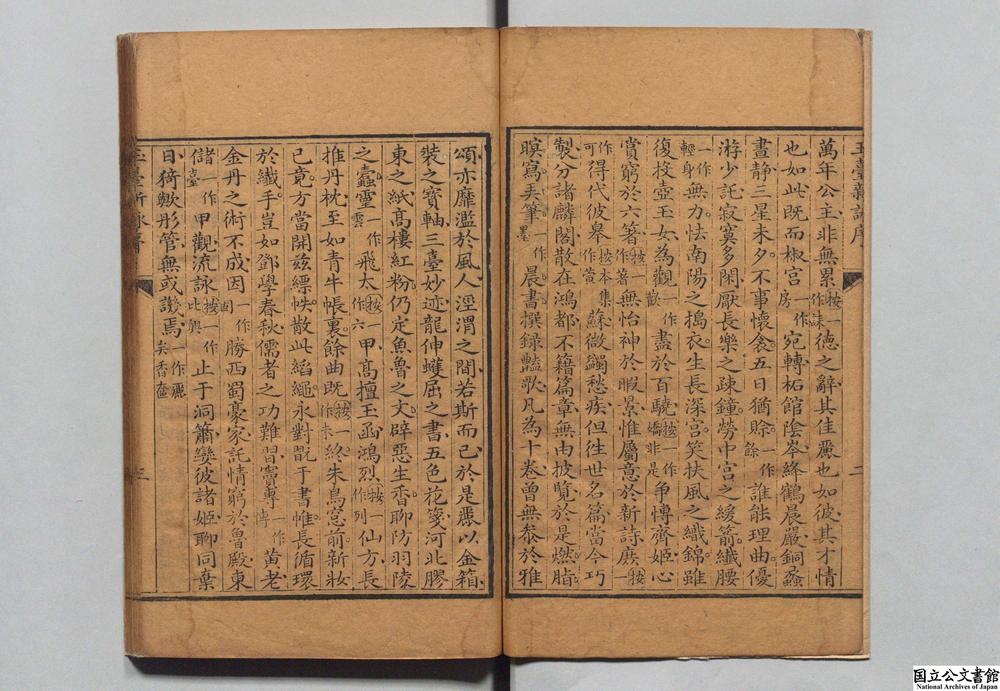 玉臺新詠序
萬年公主非無累按一作誄德之辭其佳麗也如彼其才情
也如此既而椒宮一作房宛轉柘館陰岑絳鶴晨嚴銅蠡
晝靜三星未夕不事懷衾五日猶賒一作餘誰能理曲優
游少託寂寞多閑厭長樂之疎鐘勞中宮之緩箭纖腰
一作輕身無力怯南陽之搗衣生長深宮笑扶風之織錦雖
復投壺玉女為觀一作歡盡於百驍按一作嬌非是爭博齊姬心
賞窮於六箸按一作著無怡神於暇景惟屬意於新詩庶按一作可
得代彼皋按本集作萱蘇微蠲愁疾但往世名篇當今巧
製分諸麟閣散在鴻都不籍篇章無由披覽於是燃脂
暝寫弄筆一作墨晨書撰録豔歌凡為十卷曾無忝於雅
二
頌亦靡濫於風人涇渭之間若斯而已於是麗以金箱
裝之寶軸三臺妙迹龍伸蠖屈之書五色花箋河北膠
東之紙高樓紅粉仍定魚魯之文辟惡生香聊防羽陵
之蠹靈一作雲飛太按一作六甲高擅玉函鴻烈按一作列仙方長
推丹枕至如青牛帳裏餘曲既按一作未終朱鳥窓前新妝
已竟方當開茲縹帙散此縚繩永對翫于書帷長循環
於纖手豈如鄧學春秋儒者之功難習竇專一作傳黃老
金丹之術不成因一作固勝西蜀豪家託情窮於魯殿東
儲一作臺甲觀流詠按一作比興止于洞簫孌彼諸姬聊同棄
日猗歟彤管無或譏焉一作麗矣香奩
玉臺新詠序
三
国立公文書館
National Archives of Japan